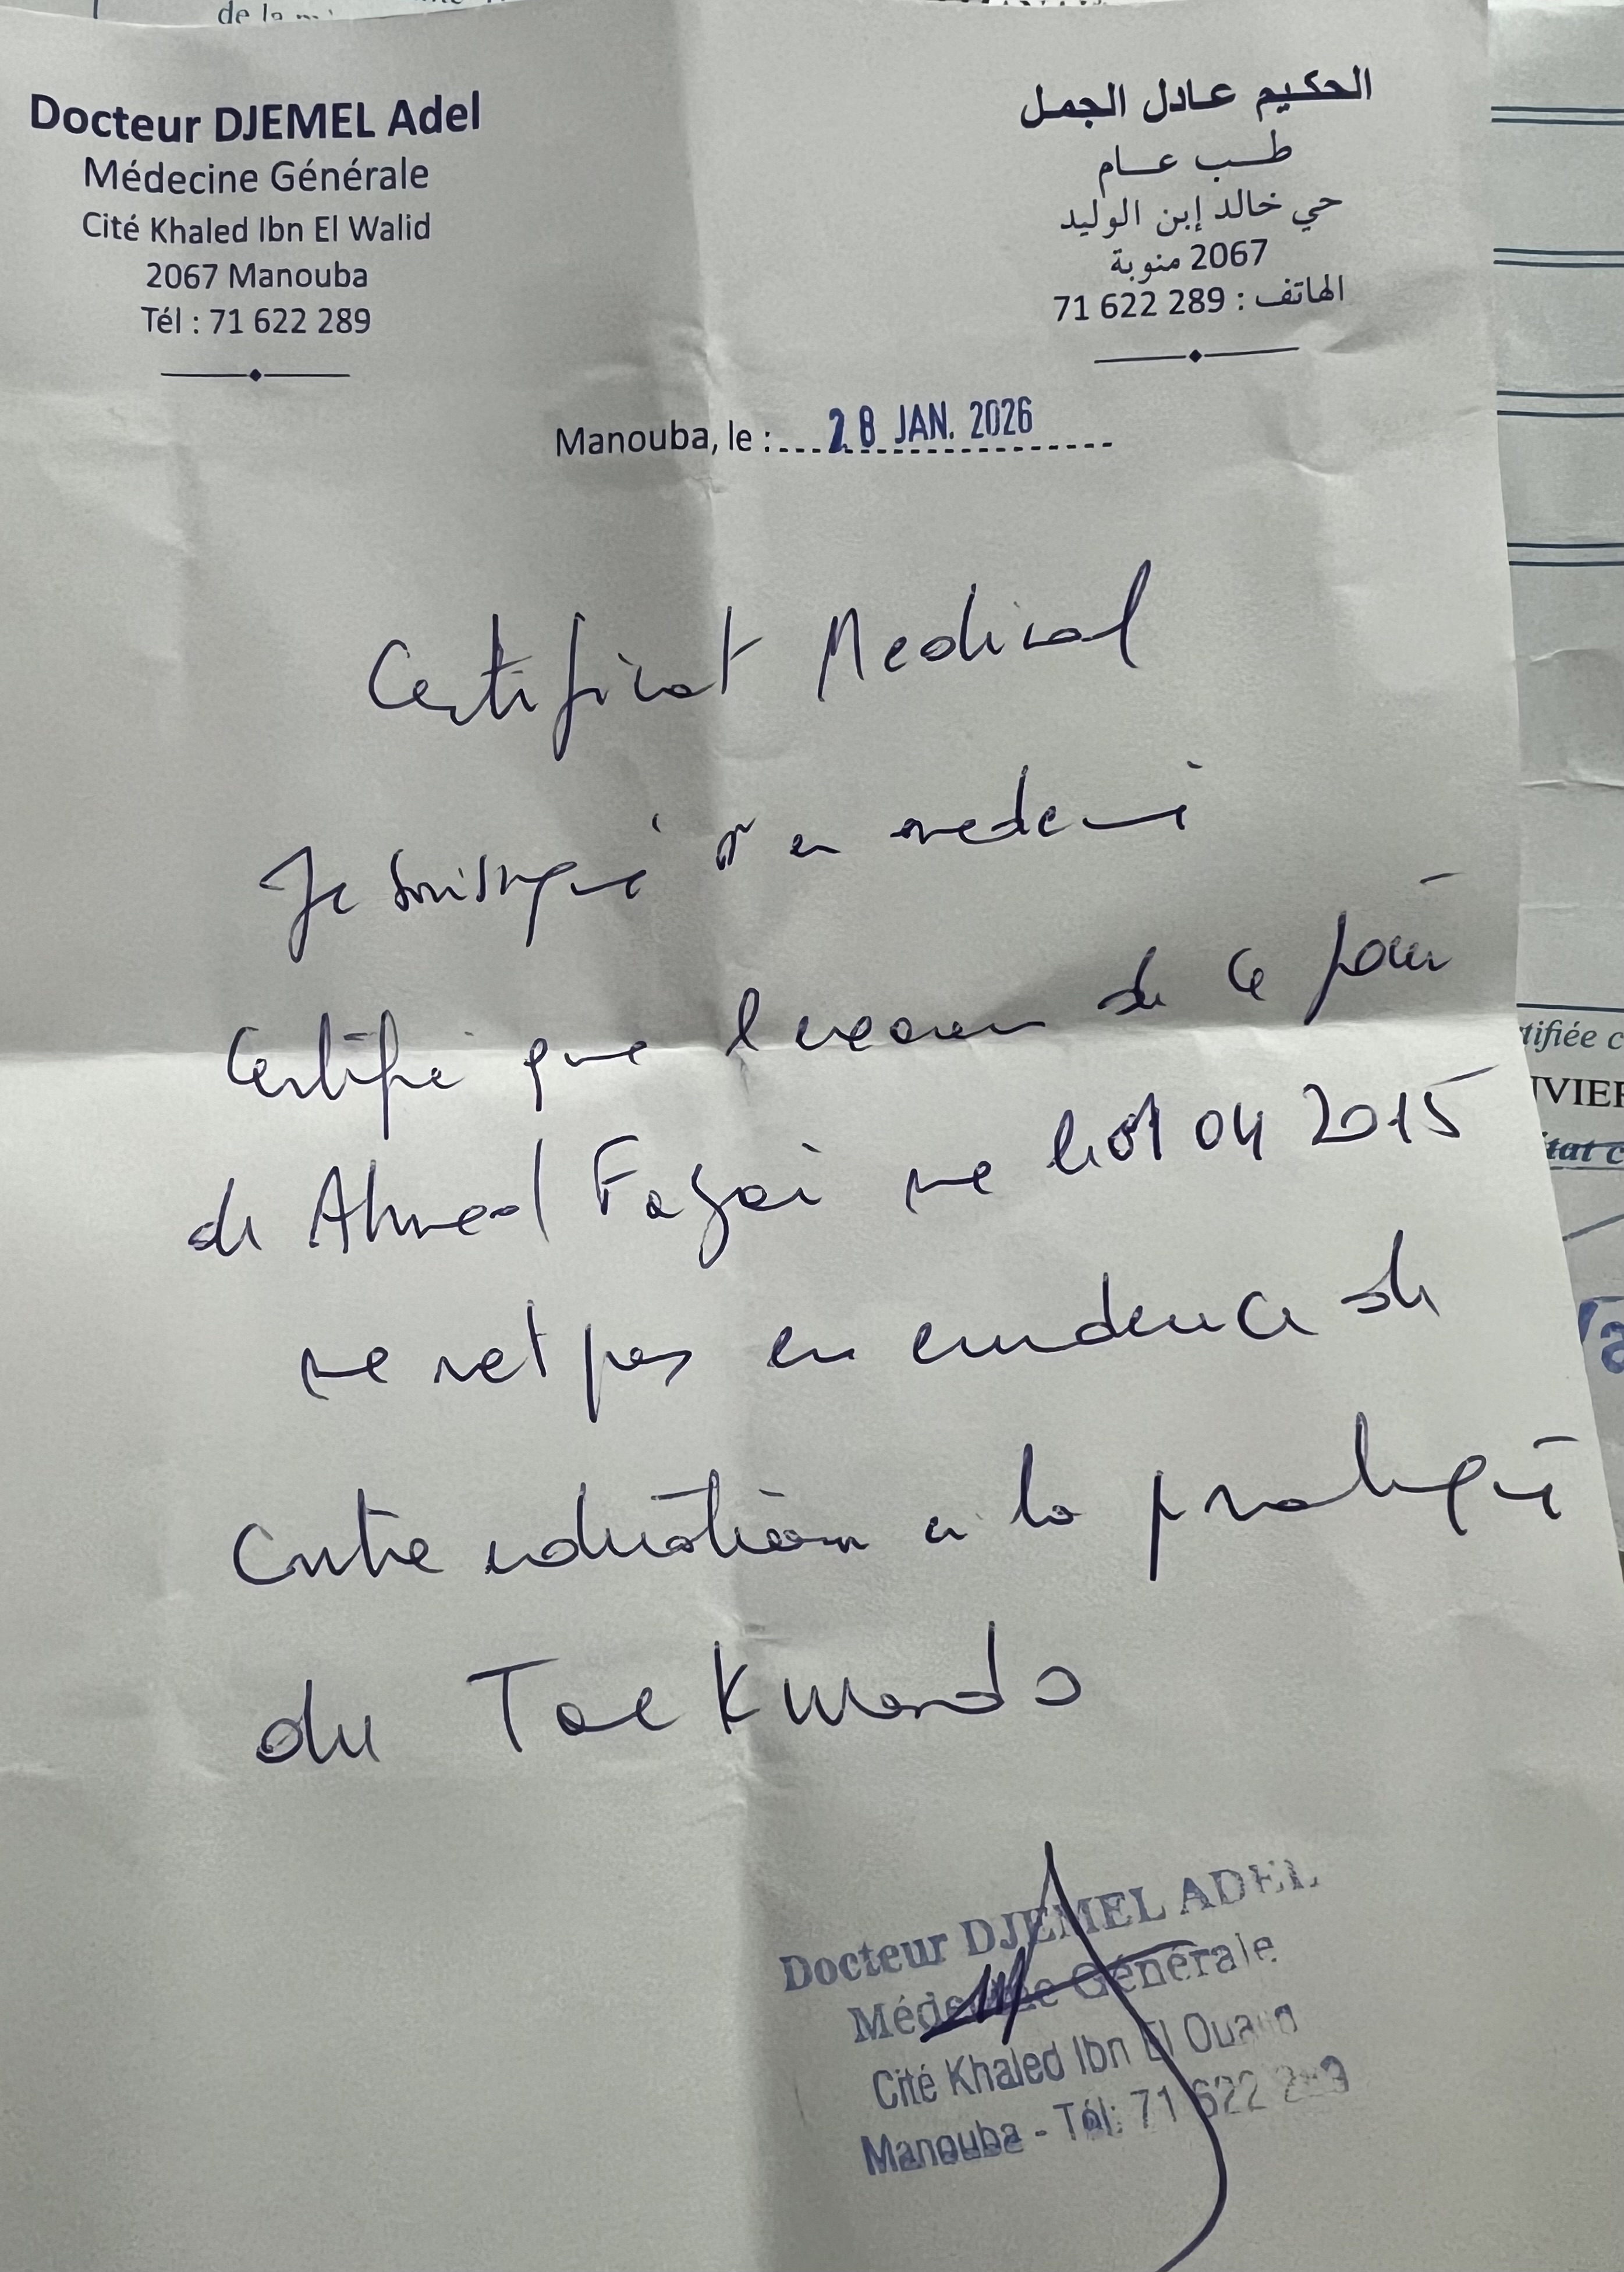 de la
Docteur DJEMEL Adel
Médecine Générale
Cité Khaled Ibn El Walid
2067 Manouba
Tél : 71 622 289
الحكيم عادل الجمل
طب عام
حي خالد إبن الوليد
2067 منوبة
الهاتف : 71 622 289
Manouba, le : 28 JAN. 2026
Certificat Medical
Je soussigné Dr en medecine
Certifie que l'examen de ce jour
de Ahmed né le 01 04 2015
ne met pas en evidence de
Contre indication a la pratique
du Taekwondo
Docteur DJEMEL ADEL
Médecine Générale
Cité Khaled Ibn El
Manouba - Tél: 71 622
tifiée c
VIER
tat c